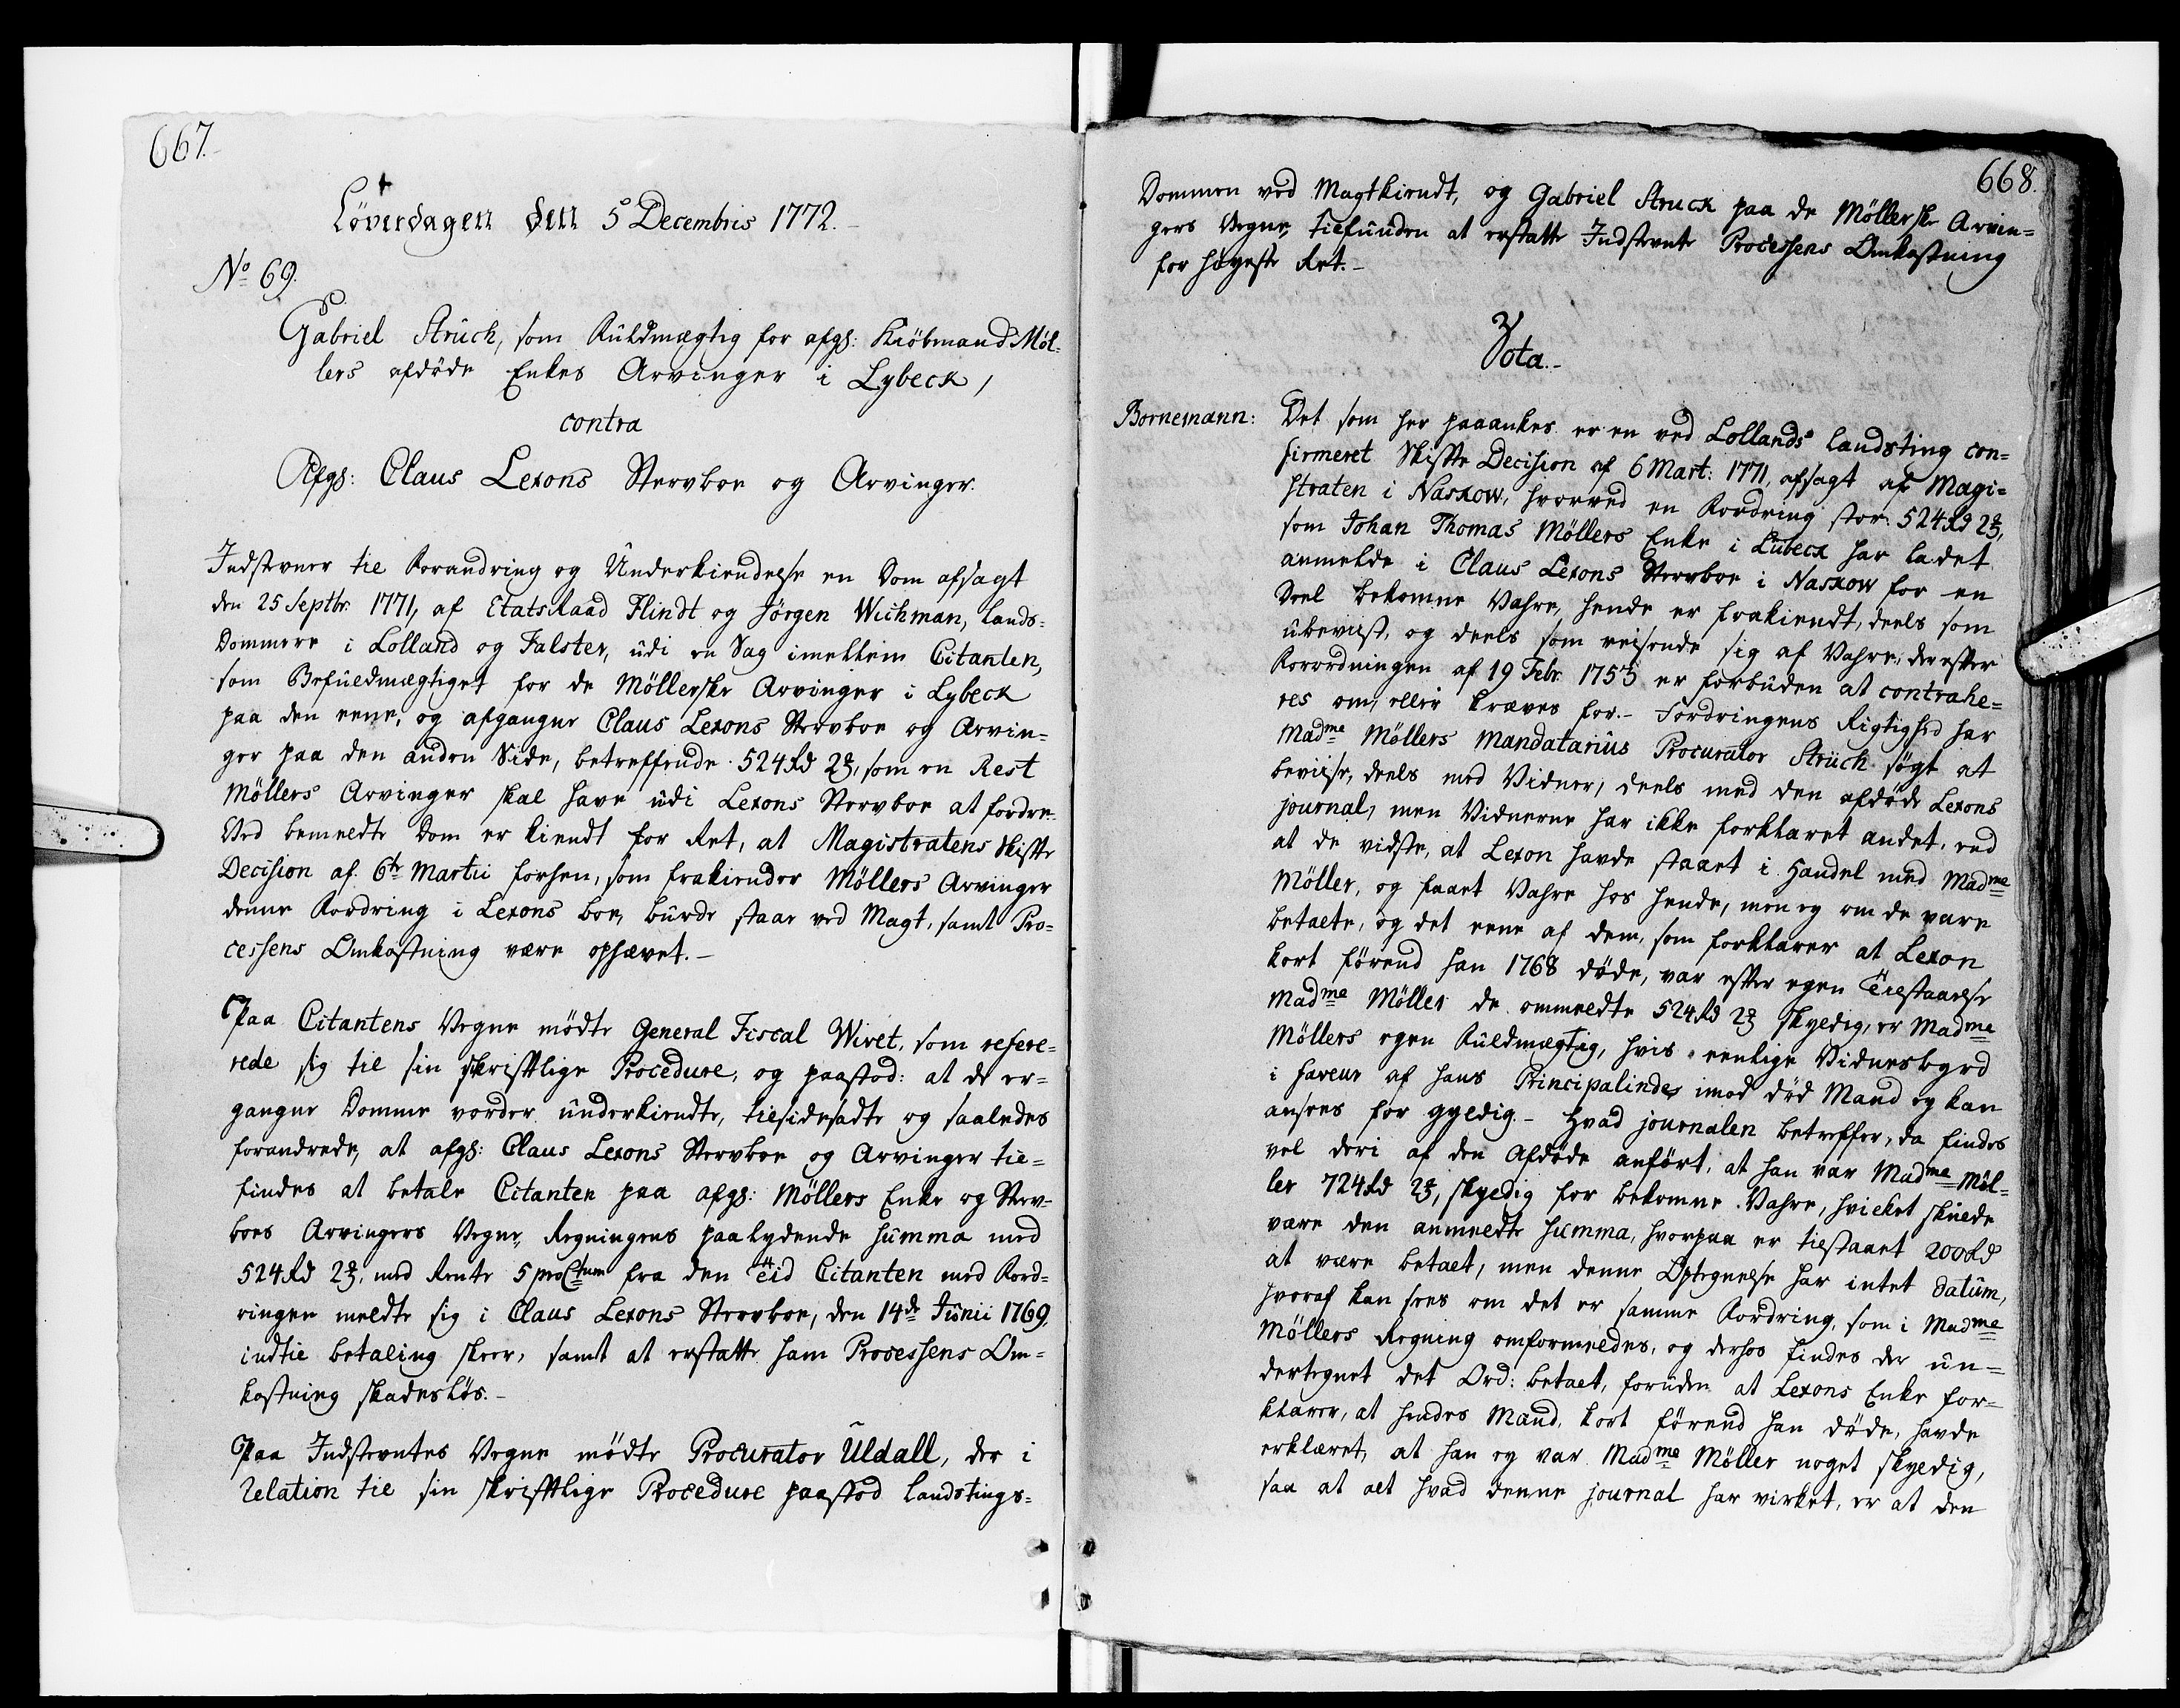 667.
Löverdagen den 5 Decembris 1772.
No 69.
Gabriel Strüch, som Fuldmægtig for afgl: Kiöbmand Möl-
lers afdöde Enkes Arvinger i Lybeck,
contra
Afgl: Claus Lexons Stervboe og Arvinger.
Indstevner til Forandring og Underkiendelse en Dom afsagt
den 25 Septbr. 1771, af Etats Raad Flindt og Jörgen Wichman, Lands-
Dommere i Lolland og Falster, udi en Sag imellem Citanten,
som Befuldmægtiget for de Möllerske Arvinger i Lybeck
paa den eene, og afgangne Claus Lexons Stervboe og Arvin-
ger paa den anden Side, betreffende 524 Rd 2 ß, som en Rest
Möllers Arvinger skal have udi Lexons Stervboe at fordre.
Ved bemeldte Dom er kiendt for Ret, at Magistratens Skifte
Decision af 6te Martii forhen, som frakiender Möllers Arvinger
denne Fordring i Lexons boe, burde staae ved Magt, samt Pro-
cessens Omkostning være ophævet.-
Paa Citantens Vegne mödte General Fiscal Wivet, som refere-
rede sig til sin skriftlige Procedure, og paastod: at de er-
gangne Domme vorder underkiendte, tilsidesadte og saaledes
forandrede, at afgl: Claus Lexons Stervboe og Arvinger til-
findes at betale Citanten paa afgl: Möllers Enke og Sterv-
boes Arvingers Vegne, Regningens paalydende Summa med
524 Rd 2 ß, med Rente 5 pro Ctum fra den Tiid Citanten med Ford-
ringen meldte sig i Claus Lexons Stervboe, den 14de Junii 1769,
indtil betaling skeer, samt at erstatte ham Processens Om-
kostning skadeslös.-
Paa Indstevntes Vegne mödte Procurator Uldall, der i
Relation til sin skriftlige Procedure paastod Landstings-
668.
Dommen ved Magtkiendt, og Gabriel Struck paa de Möllerske Arvin-
gers Vegne, tilfunden at erstatte Indstevnte Processens Omkostning
for Höyeste Ret.-
Vota.-
Bornemann: Det som her paaankes er en ved Lollands Landsting con-
firmeret Skifte Decision af 6 Mart: 1771, afsagt af Magi-
straten i Naskow, hvorved en Fordring stor 524 Rd 2 ß,
som Johan Thomas Möllers Enke i Lübeck har ladet
anmelde i Claus Lexons Stervboe i Naskow for en
Deel bekomne Vahre, hende er frakiendt, deels som
ubeviist, og deels som reisende sig af Vahre, der efter
Forordningen af 19 Febr. 1753 er forbuden at contrahe-
res om, eller kræves for.- Fordringens Rigtighed har
Madme Möllers Mandatarius Procurator Strüch sögt at
beviise, deels med Vidner, deels med den afdöde Lexons
journal, men Vidnerne har ikke forklaret andet, end
at de vidste, at Lexon havde staaet i Handel med Madme
Möller, og faaet Vahre hos hende, men ey om de vare
betalte, og det eene af dem, som forklarer at Lexon
kort förend han 1768 döde, var efter egen Tilstaaelse
Madme Möller de ommeldte 524 Rd 2 ß skyldig, er Madme
Möllers egen Fuldmægtig, hvis eenlige Vidnesbyrd
i faveur af hans Principalinde, imod död Mand ey kan
ansees for gyldig.- Hvad journalen betreffer, da findes
vel deri af den Afdöde anfört, at han var Madme Möl-
ler 724 Rd 2 ß, skyldig for bekomne Vahre, hvilket skulde
være den anmeldte Summa, hvorpaa er tilstaaet 200 Rd
at være betalt, men denne Optegnelse har intet datum,
hvoraf kan sees om det er samme Fordring, som i Madme
Möllers Regning omformeldes, og derhos findes der un-
dertegnet det Ord: betalt, foruden at Lexons Enke for-
klarer, at hendes Mand, kort förend han döde, havde
erklæret, at han ey var Madme Möller noget skyldig,
saa at alt hvad denne journal har virket, er at den